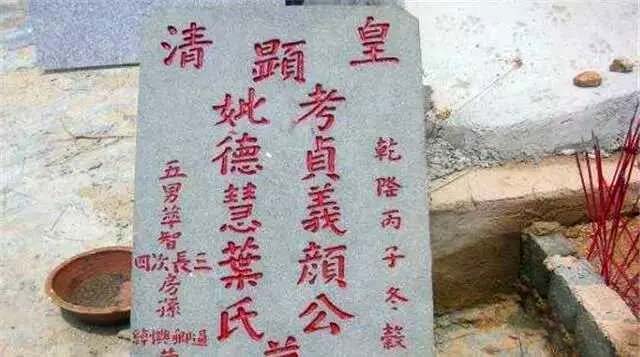 皇清
乾隆丙子冬穀
顯
考貞義顏公
妣德慧葉氏
三長次四
房孫
五男智